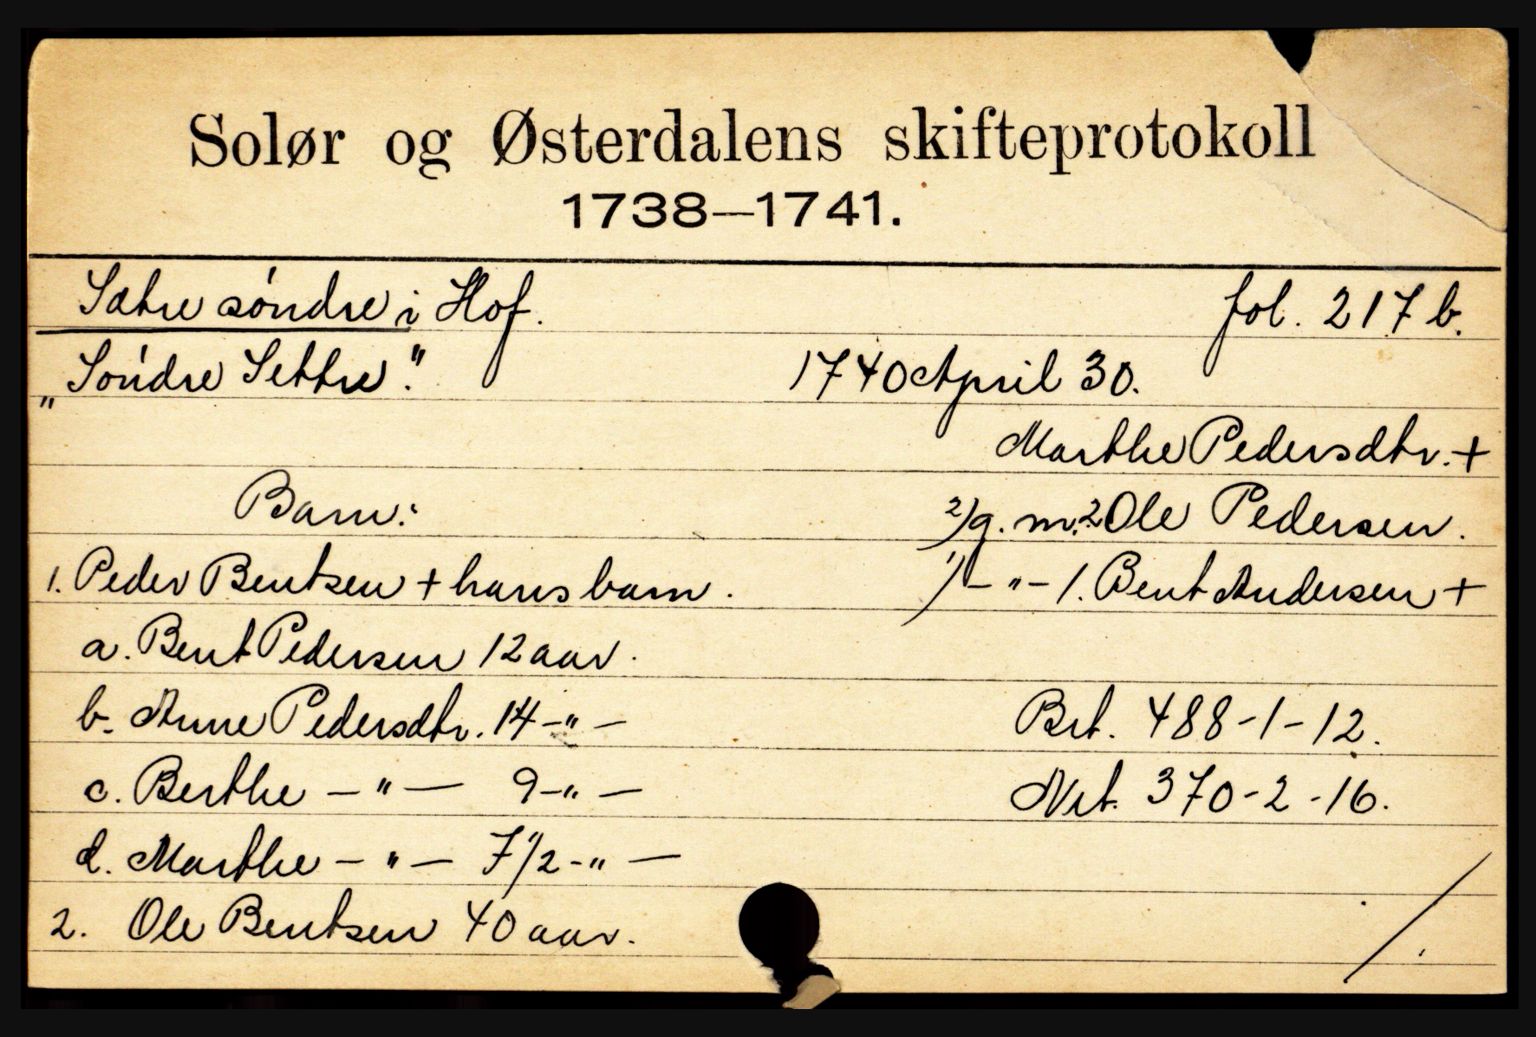 Solør og Østerdalens skifteprotokoll
1738—1741.
Sætre søndre i Hof. fol. 217 b.
„Söndre Settre." 1740 April 30.
Marthe Pedersdtr. +
Barn: 2) g. m. 2 Ole Pedersen.
1. Peder Bentsen + hans barn. 1) – " – 1. Bent Andersen +
a. Bent Pedersen 12 aar.
b. Anne Pedersdtr. 14 – " – Brt. 488-1-12.
c. Berthe – " – 9 – " – Nrt. 370-2-16.
d. Marthe – " – 7 1/2 - " –
2. Ole Bentsen 40 aar. /.